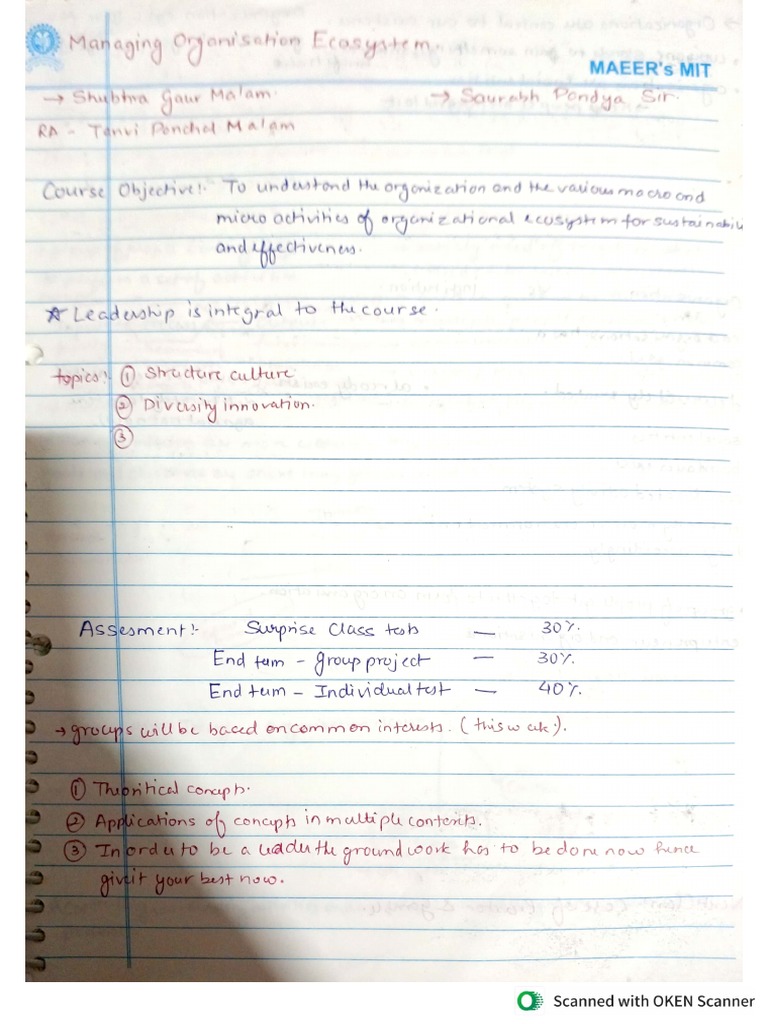 Managing Organisation Ecosystem
MAEER's MIT
→ Shubhra Gaur Malam. → Saurabh Pandya Sir.
RA - Tanvi Panchal Malam
Course Objective:- To understand the organization and the various macro and
micro activities of organizational ecosystem for sustainabili
and effectiveness.
☆ Leadership is integral to the course.
topics:- ① Structure culture
② Diversity innovation.
③
Assesment:- Surprise Class tests — 30%.
End term - group project — 30%.
End term - Individual test — 40%.
→ groups will be based on common interests. (this week).
① Theoritical concepts.
② Applications of concepts in multiple contexts.
③ In order to be a leader the ground work has to be done now hence
give it your best now.
Scanned with OKEN Scanner